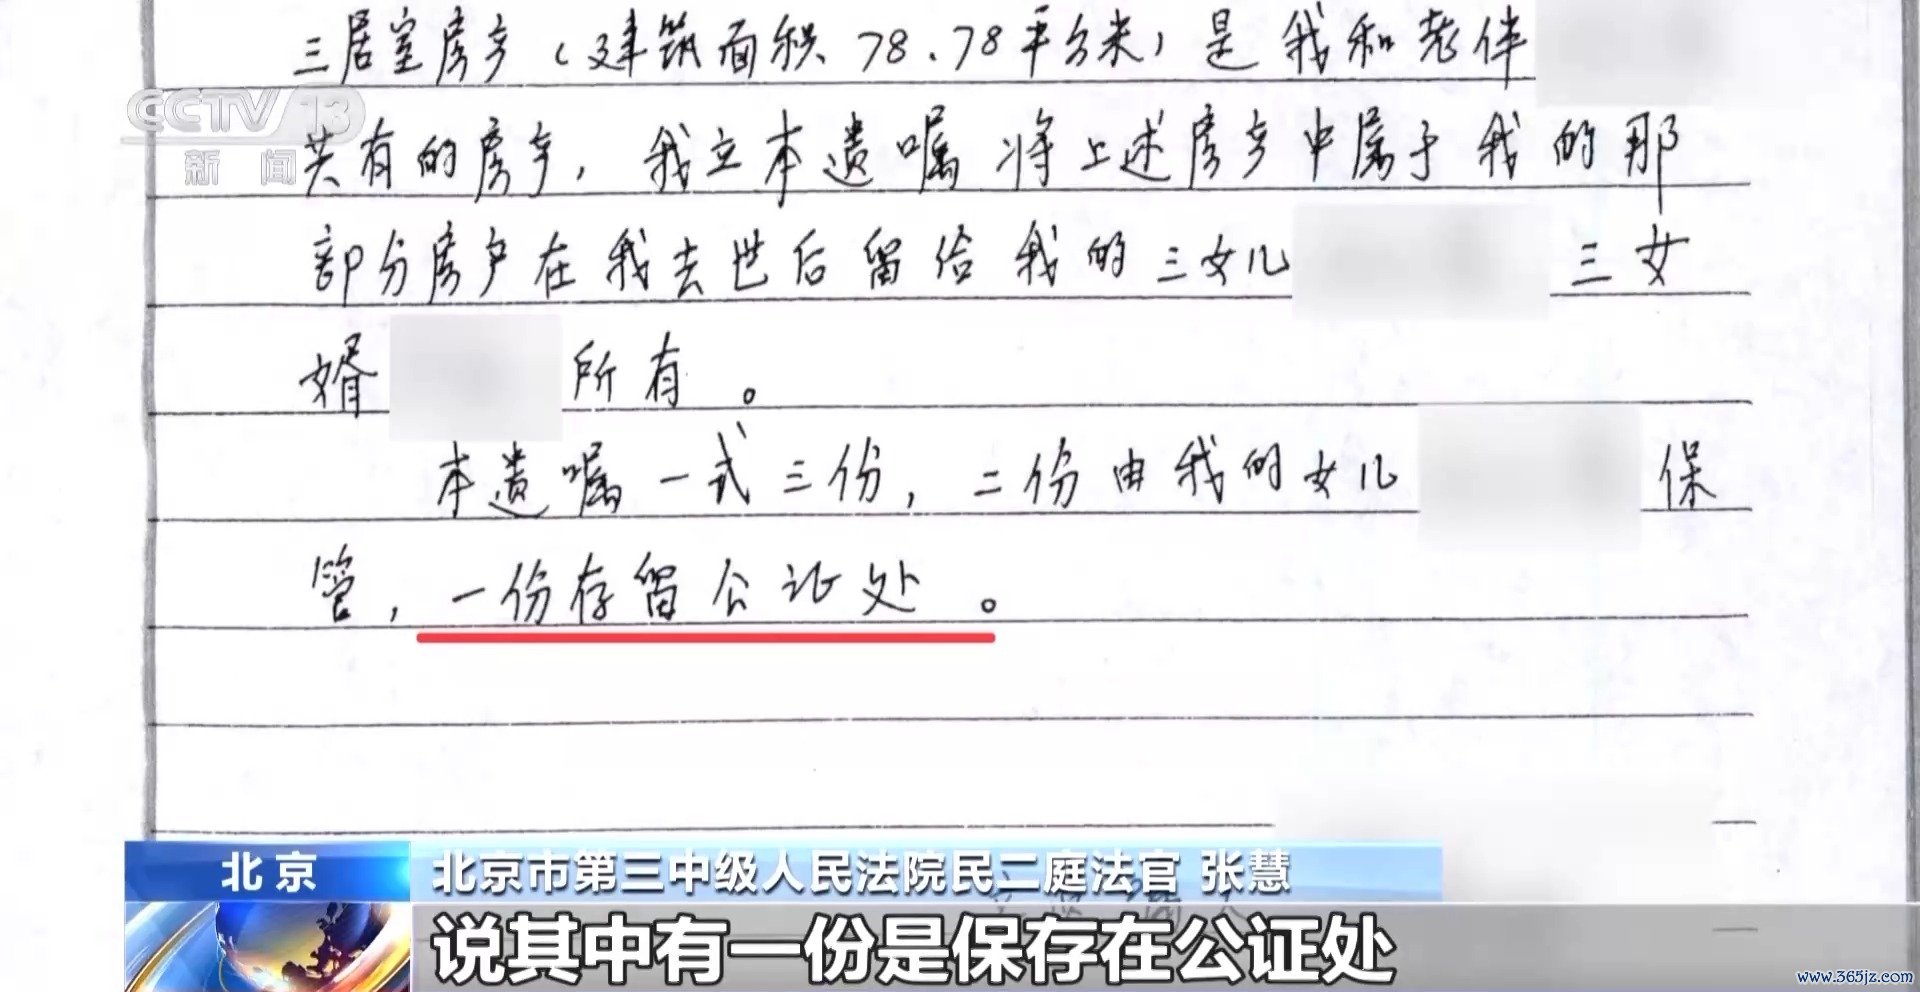 三居室房产(建筑面积78.78平方米)是我和老伴
CCTV 13
新闻
共有的房产,我立本遗嘱将上述房产中属于我的那
部分房产在我去世后留给我的三女儿 三女
婿 所有。
本遗嘱一式三份,二份由我的女儿 保
管,一份存留公证处。
北京
北京市第三中级人民法院民二庭法官 张慧
说其中有一份是保存在公证处
www.365jz.com